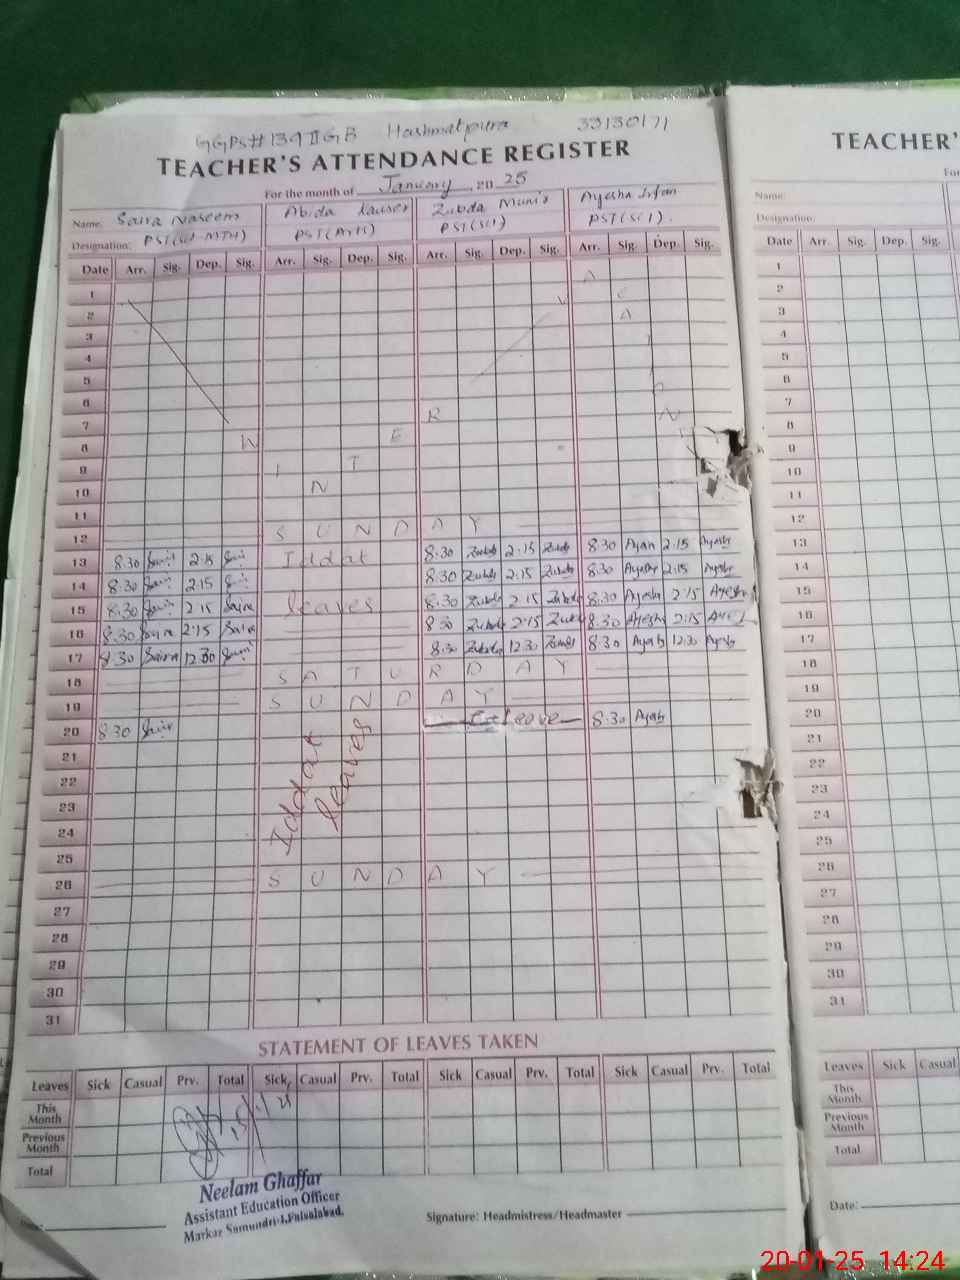 GGPS# 139 II GB Hashmatpura 33130171
TEACHER'S ATTENDANCE REGISTER
For the month of January, 20 25
Name: Saira Naseem Abida Kauser Zubda Munir Ayesha Irfan
Designation: PST(Sci-MTH) PST(Arts) PST(SCI) PST(SCI).
Date Arr. Sig. Dep. Sig. Arr. Sig. Dep. Sig. Arr. Sig. Dep. Sig. Arr. Sig. Dep. Sig.
1
2
3
4
5
6
7
8
9
10
11
W I N T E R V A C A N
12 S U N D A Y
13 8:30 2:15 Iddat 8:30 Zubda 2:15 Zubda 8:30 Ayesha 2:15 Ayesha
14 8:30 2:15 8:30 Zubda 2:15 Zubda 8:30 Ayesha 2:15 Ayesha
15 8:30 2:15 Saira leaves 8:30 Zubda 2:15 Zubda 8:30 Ayesha 2:15 Ayesha
16 8:30 Saira 2:15 Saira 8:30 Zubda 2:15 Zubda 8:30 Ayesha 2:15 Ayesha
17 8:30 Saira 12:30 8:30 Zubda 12:30 Zubda 8:30 Ayesha 12:30 Ayesha
18 S A T U R D A Y
19 S U N D A Y
20 8:30 Leave 8:30 Ayesha
21
22
23
24
25
Iddat leaves
26 S U N D A Y
27
28
29
30
31
STATEMENT OF LEAVES TAKEN
Leaves Sick Casual Prv. Total Sick Casual Prv. Total Sick Casual Prv. Total Sick Casual Prv. Total
This Month
Previous Month
Total
Neelam Ghaffar
Assistant Education Officer
Markaz Samundri-I, Faisalabad.
Signature: Headmistress/Headmaster
TEACHER'
Name:
Designation:
Date Arr. Sig. Dep. Sig.
1
2
3
4
5
6
7
8
9
10
11
12
13
14
15
16
17
18
19
20
21
22
23
24
25
26
27
28
29
30
31
Leaves Sick Casual
This Month
Previous Month
Total
Date:
20-01-25 14:24